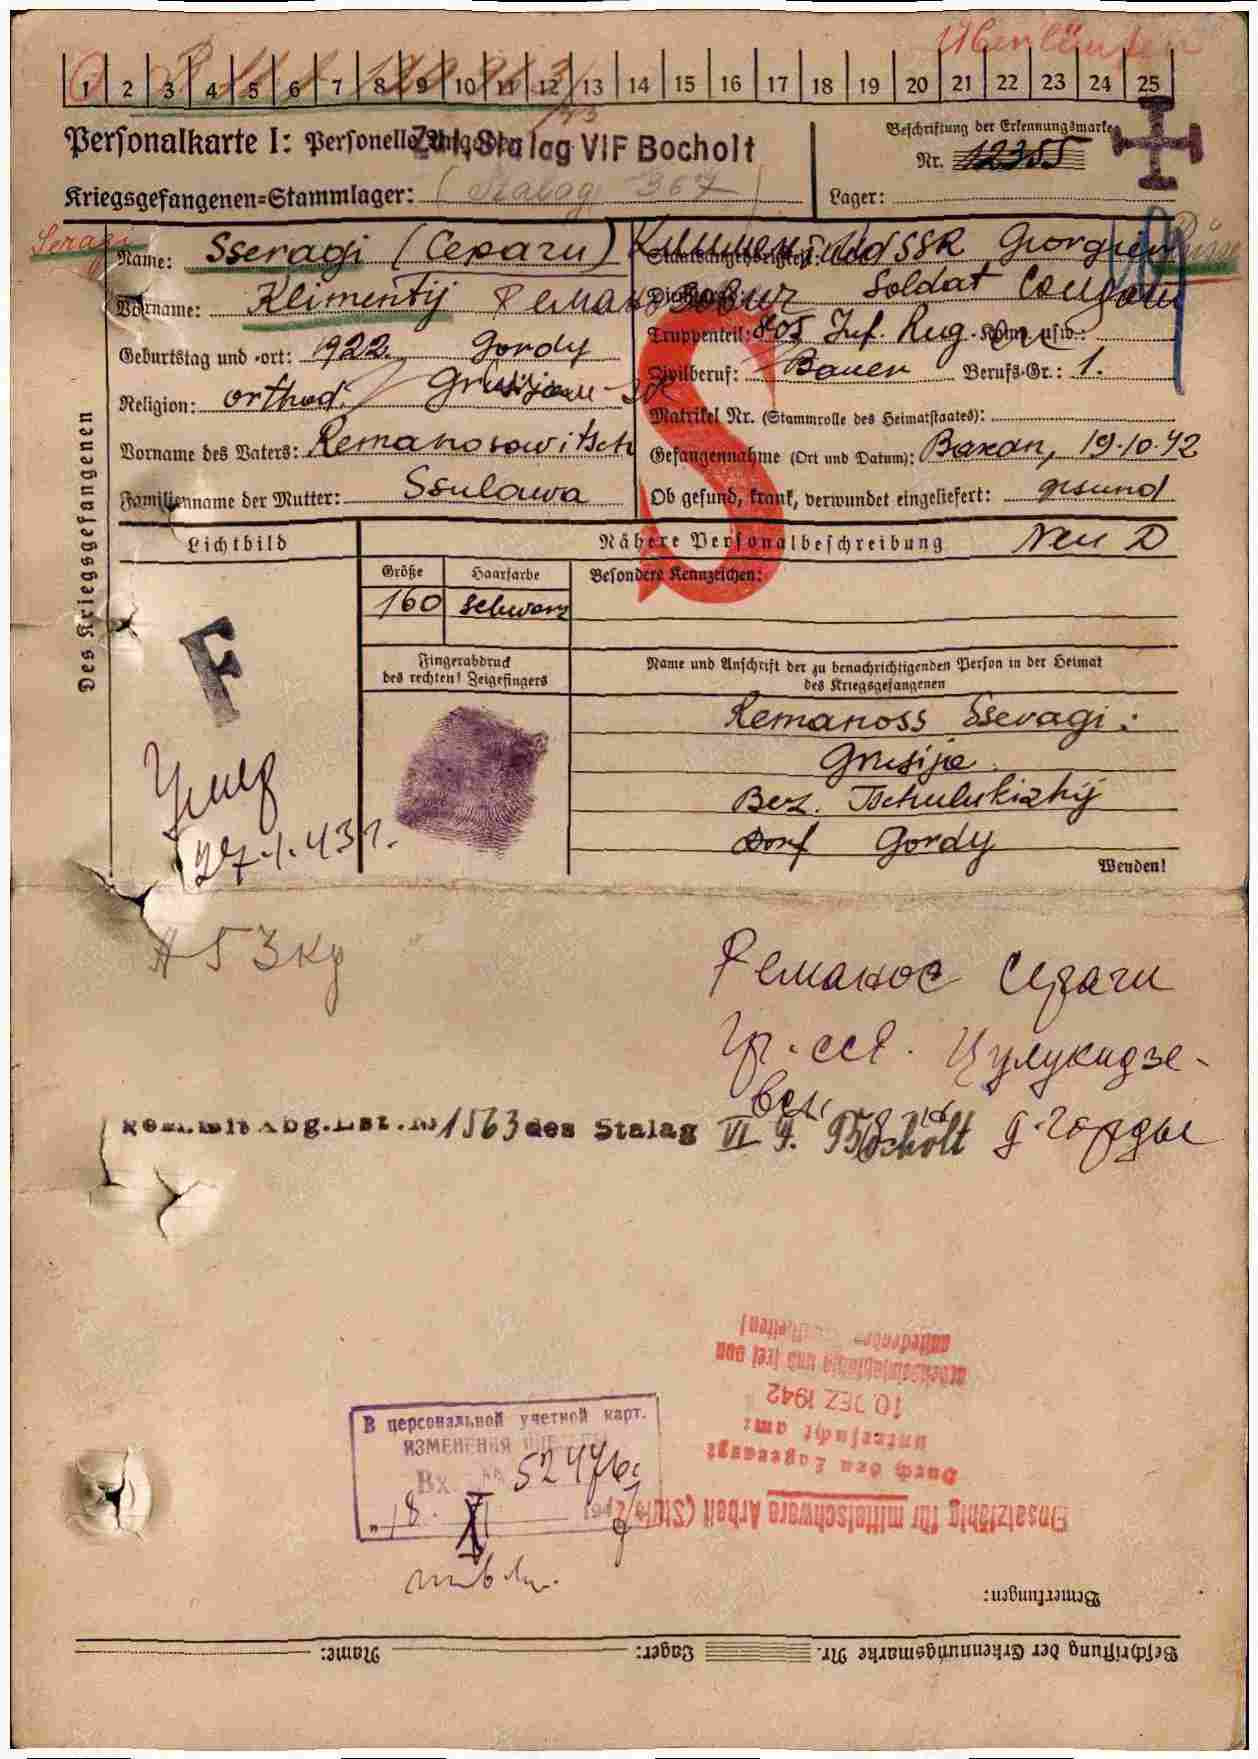 1 2 3 4 5 6 7 8 9 10 11 12 13 14 15 16 17 18 19 20 21 22 23 24 25
Personalkarte I: Personelle
Stalag VI F Bocholt
Beschriftung der Erkennungsmarke
Nr. 12355
Kriegsgefangenen-Stammlager: (Stalag 367)
Lager:
Seragi
Des Kriegsgefangenen
Name: Sseragi (Сераги)
Staatsangehörigkeit: UdSSR Georgien
Russe
Vorname: Klimentij
Dienstgrad: Soldat
Geburtstag und -ort: 1922. Gordy
Truppenteil: 805 Inf. Reg. Komp. usw.:
Religion: orthod.
Zivilberuf: Bauer Berufs-Gr.: 1.
Matrikel Nr. (Stammrolle des Heimatstaates):
Vorname des Vaters: Remanosowitsch
Gefangennahme (Ort und Datum): Baxan, 19.10.42
Familienname der Mutter: Ssulawa
Ob gesund, krank, verwundet eingeliefert: gesund
S
Lichtbild
Nähere Personalbeschreibung
Größe
Haarfarbe
Besondere Kennzeichen:
160
schwarz
F
Fingerabdruck
des rechten! Zeigefingers
Name und Anschrift der zu benachrichtigenden Person in der Heimat
des Kriegsgefangenen
Remanoss Sseragi:
Grusija
Bez. Tschulukizhij
Dorf Gordy
Умер
27.1.43 г.
Wenden!
Реманос Сераги
Гр. ССР. Цулукидзе-
д. Горды
1563 des Stalag VI F. Bocholt
arbeitseinsatzfähig und frei von
10. DEZ 1942
untersucht am:
Durch den Lagerarzt
Einsatzfähig für mittelschwere Arbeit
В персональной учетной карт.
ИЗМЕНЕНИЯ
Вх № 52476
18. XI
Bemerkungen:
Beschriftung der Erkennungsmarke Nr. Lager: Name: